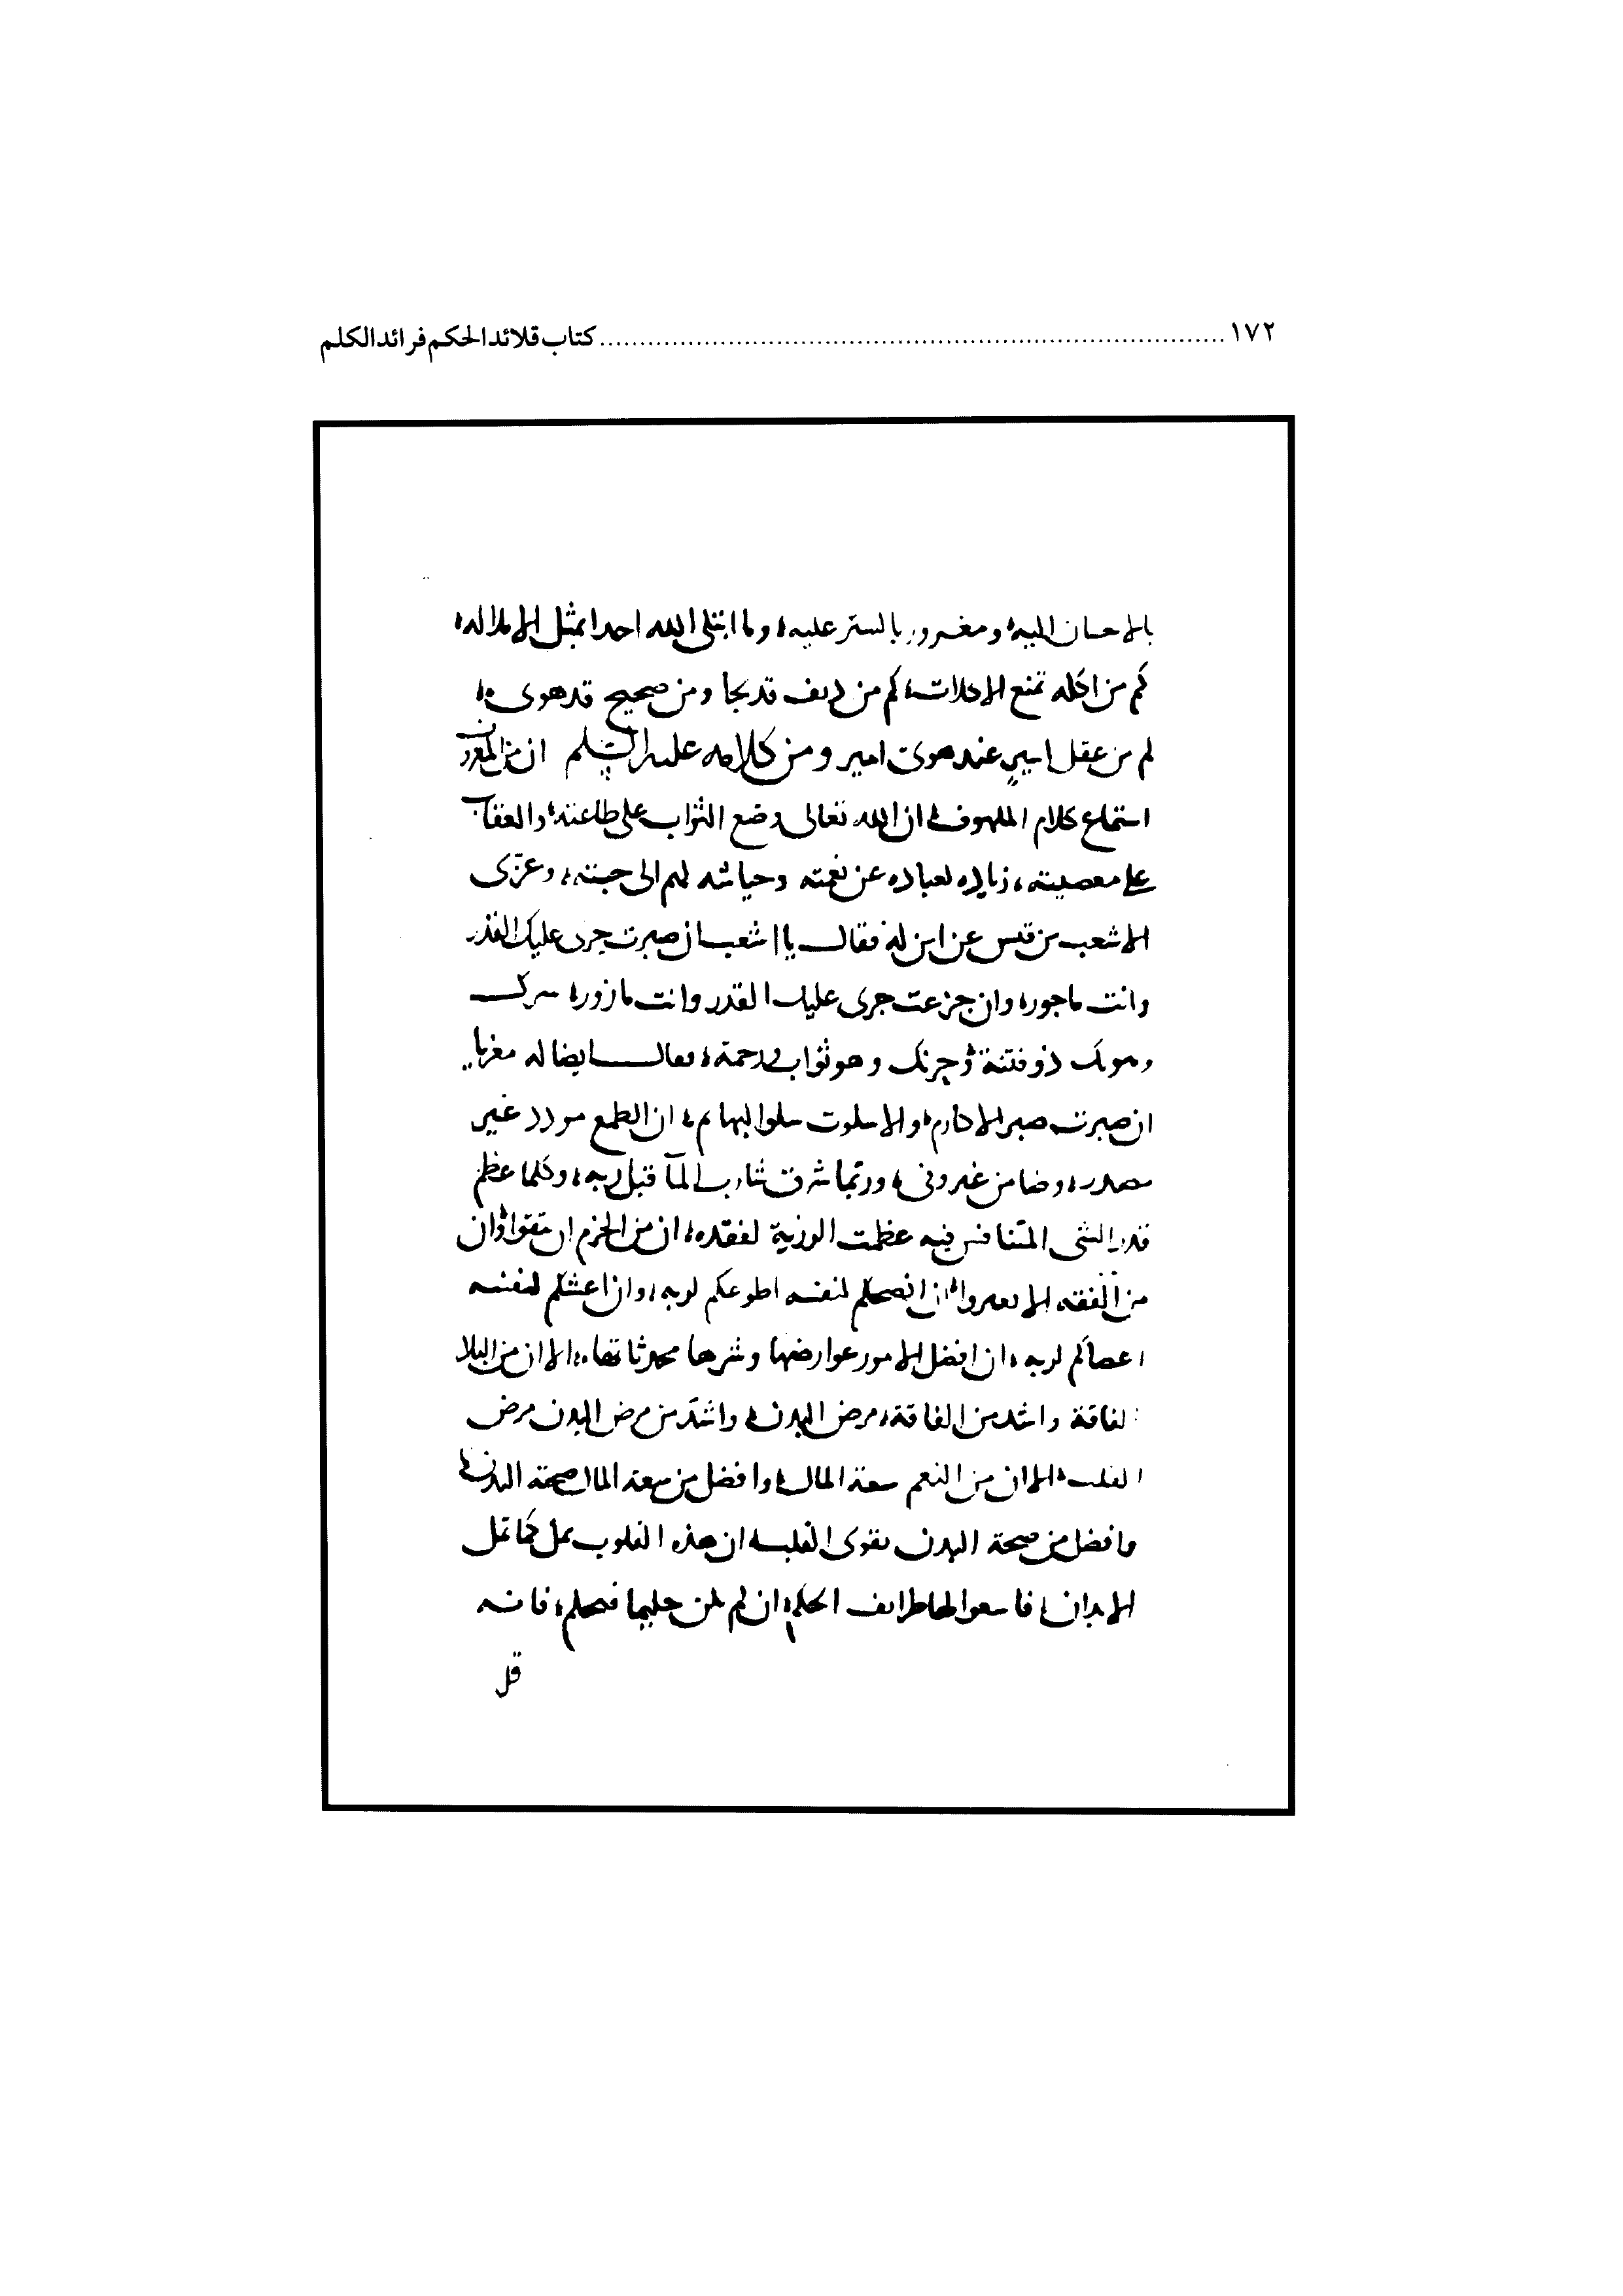 ١٧٢ ........ كتاب قلائد الحكم فرائد الكلم
بالاحسان اليه ومغرور بالستر عليه وما ابتلى الله احدا بمثل الاملا له
كم من اكله تمنع الاكلات كم من دنف قد نجا ومن صحيح قد هوى
كم من عقل اسير عند هوى امير ومن كلامه عليه السلم ان من المعروف
استماع كلام الملهوف ان الله تعالى وضع الثواب على طاعته والعقاب
على معصيته زيادة لعباده عن نقمته وحياشه لهم الى جنته وعزّى
الاشعب بن قيس عن ابن له فقال يا اشعب ان صبرت جرى عليك القدر
وانت ماجور وان جزعت جرى عليك القدر وانت مازور سرك
وهو لك ذو فتنة وحزنك وهو ثواب ورحمة وقال ايضا له معزيا
ان صبرت صبر الاكارم والا سلوت سلو البهائم ان الطمع مورد غير
مصدر وضامن غير وفى وربما شرق شارب المآ قبل ريه وكلما عظم
قدر الشى المتنافس فيه عظمت الرزية لفقده ان من الحزم ان تتقوا وان
من الفقه الا تغتروا ان انصحكم لنفسه اطوعكم لربه وان اغشكم لنفسه
اعصاكم لربه ان افضل الامور عوارضها وشرها محدثاتها الا ان من البلا
الفاقة واشد من الفاقة مرض البدن واشد من مرض البدن مرض
القلب الا ان من النعم سعة المال وافضل من سعة المال صحة البدن
وافضل من صحة البدن تقوى القلب ان هذه القلوب تمل كما تمل
الابدان فابتغوا لها طرايف الحكم ان لم تكن حليما فتحلم فانه
قل